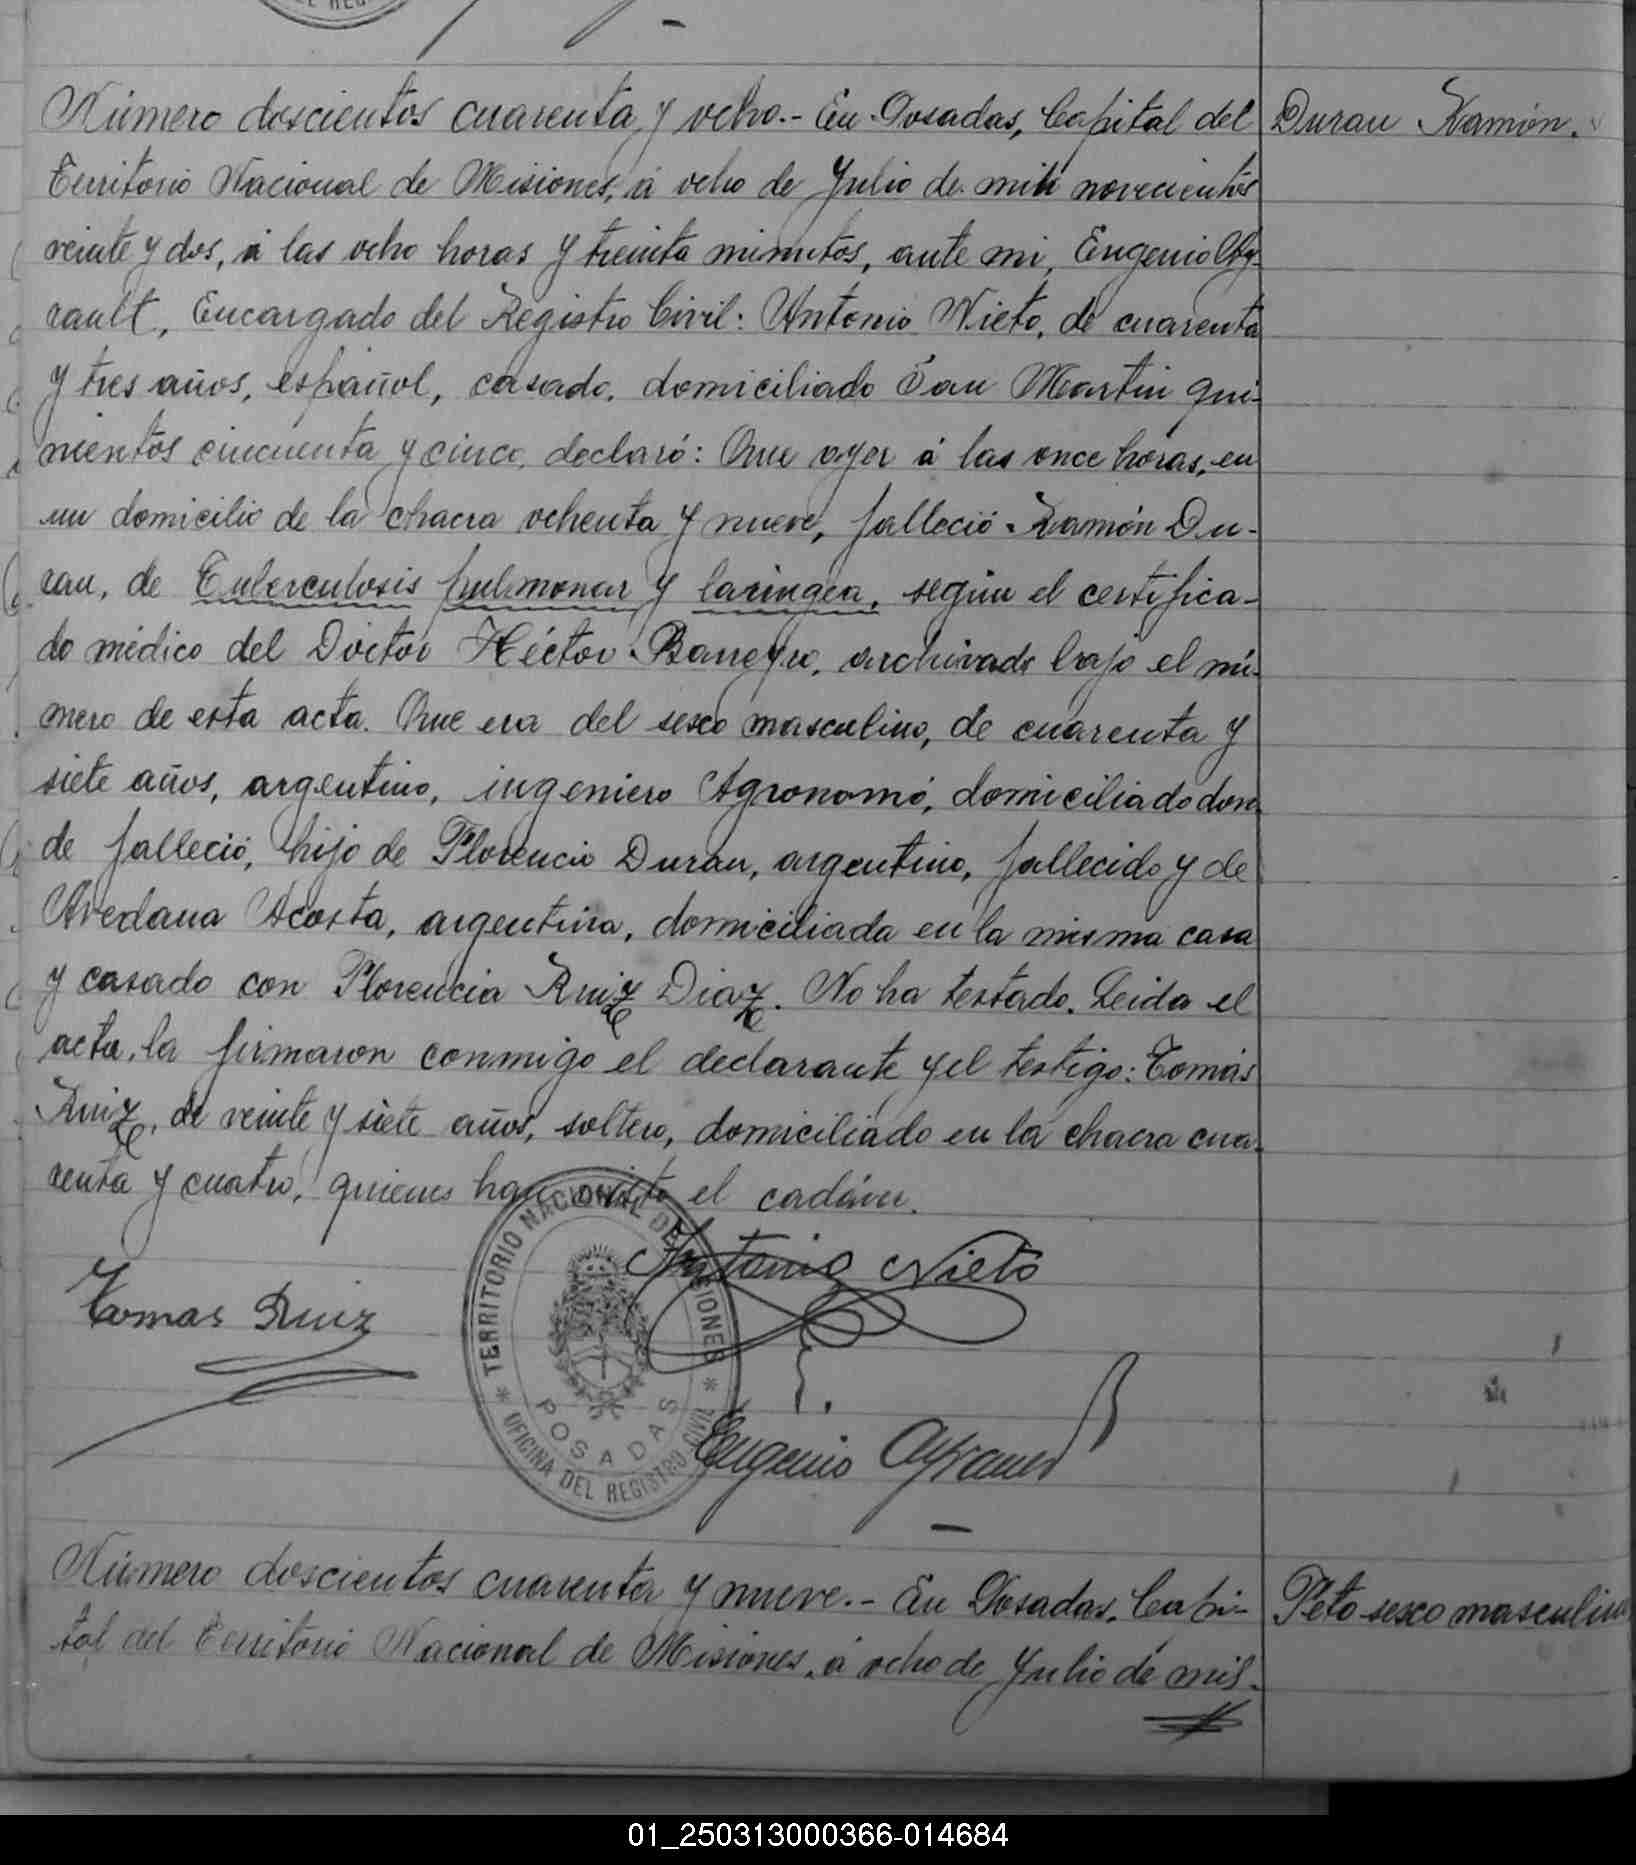 Número doscientos cuarenta y ocho.- En Posadas, Capital del
Duran Ramón.
Territorio Nacional de Misiones, á ocho de Julio de mil novecientos
veinte y dos, á las ocho horas y treinta minutos, ante mi, Eugenio Ay-
rault, Encargado del Registro Civil: Antonio Nieto, de cuarenta
y tres años, español, casado, domiciliado San Martin qui-
nientos cincuenta y cinco, declaró: Que ayer á las once horas, en
un domicilio de la chacra ochenta y nueve, falleció Ramón Du-
ran, de Tuberculosis pulmonar y laringea, según el certifica-
do médico del Doctor Héctor Barreyro, archivado bajo el nú-
mero de esta acta. Que era del sexo masculino, de cuarenta y
siete años, argentino, ingeniero Agronomó, domiciliado don
de falleció, hijo de Florencio Duran, argentino, fallecido y de
Acosta, argentina, domiciliada en la misma casa
y casado con Florencia Ruiz Diaz. No ha testado. Leida el
acta, la firmaron conmigo el declarante y el testigo: Tomás
Ruiz, de veinte y siete años, soltero, domiciliado en la chacra cua-
renta y cuatro, quienes han visto el cadáver.
Antonio Nieto
Tomas Ruiz
TERRITORIO NACIONAL DE MISIONES
POSADAS
OFICINA DEL REGISTRO CIVIL
Eugenio Ayrault
Número doscientos cuarenta y nueve.- En Posadas, Capi-
Feto sexo masculino
tal del Territorio Nacional de Misiones, á ocho de Julio de mil-
01_250313000366-014684